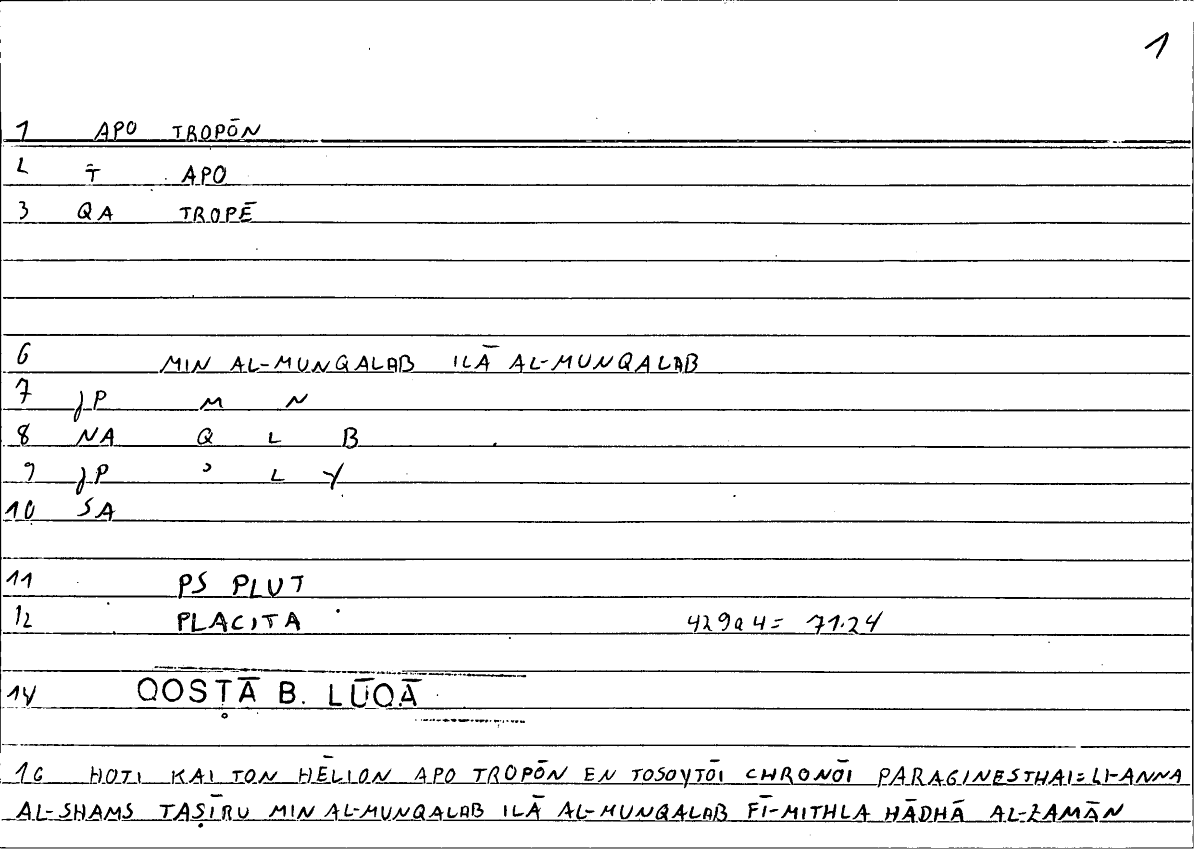 1
1 APO TROPŌN
2 T APO
3 QA TROPĒ
6 MIN AL-MUNQALAB ILĀ AL-MUNQALAB
7 JP M N
8 NA Q L B
9 JP ʾ L Y
10 SA
11 PS PLUT
12 PLACITA 429a4= 71.24
14 QOSṬĀ B. LŪQĀ
16 HOTI KAI TON HĒLION APO TROPŌN EN TOSOYTŌI CHRONŌI PARAGINESTHAI=LI-ANNA
AL-SHAMS TAṢĪRU MIN AL-MUNQALAB ILĀ AL-MUNQALAB FĪ-MITHLA HĀDHĀ AL-ZAMĀN